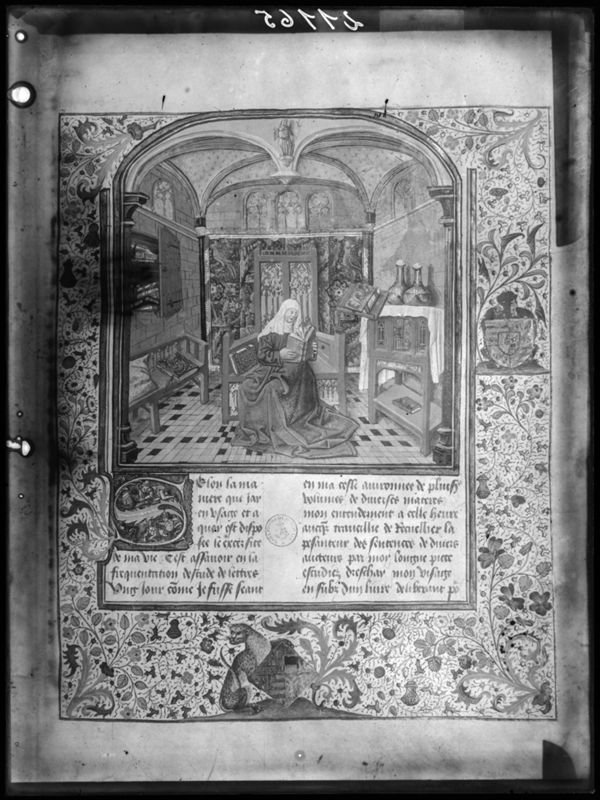 21165
Selon la ma
niere que jay
en usage et a
quoy est dispo
see le excersice
de ma vie Cest assavoir en la
frequentation destude de lettres
Ung jour come Je fusse seant
en ma celle avironnee de plusrs
volumes de diverses materes
mon entendement a celle heure
travellie de Recuellier la
pesanteur des sentences de divers
aucteurs par moy longue piece
estudiez dreschay mon visage
en sus dun livre deliberant po